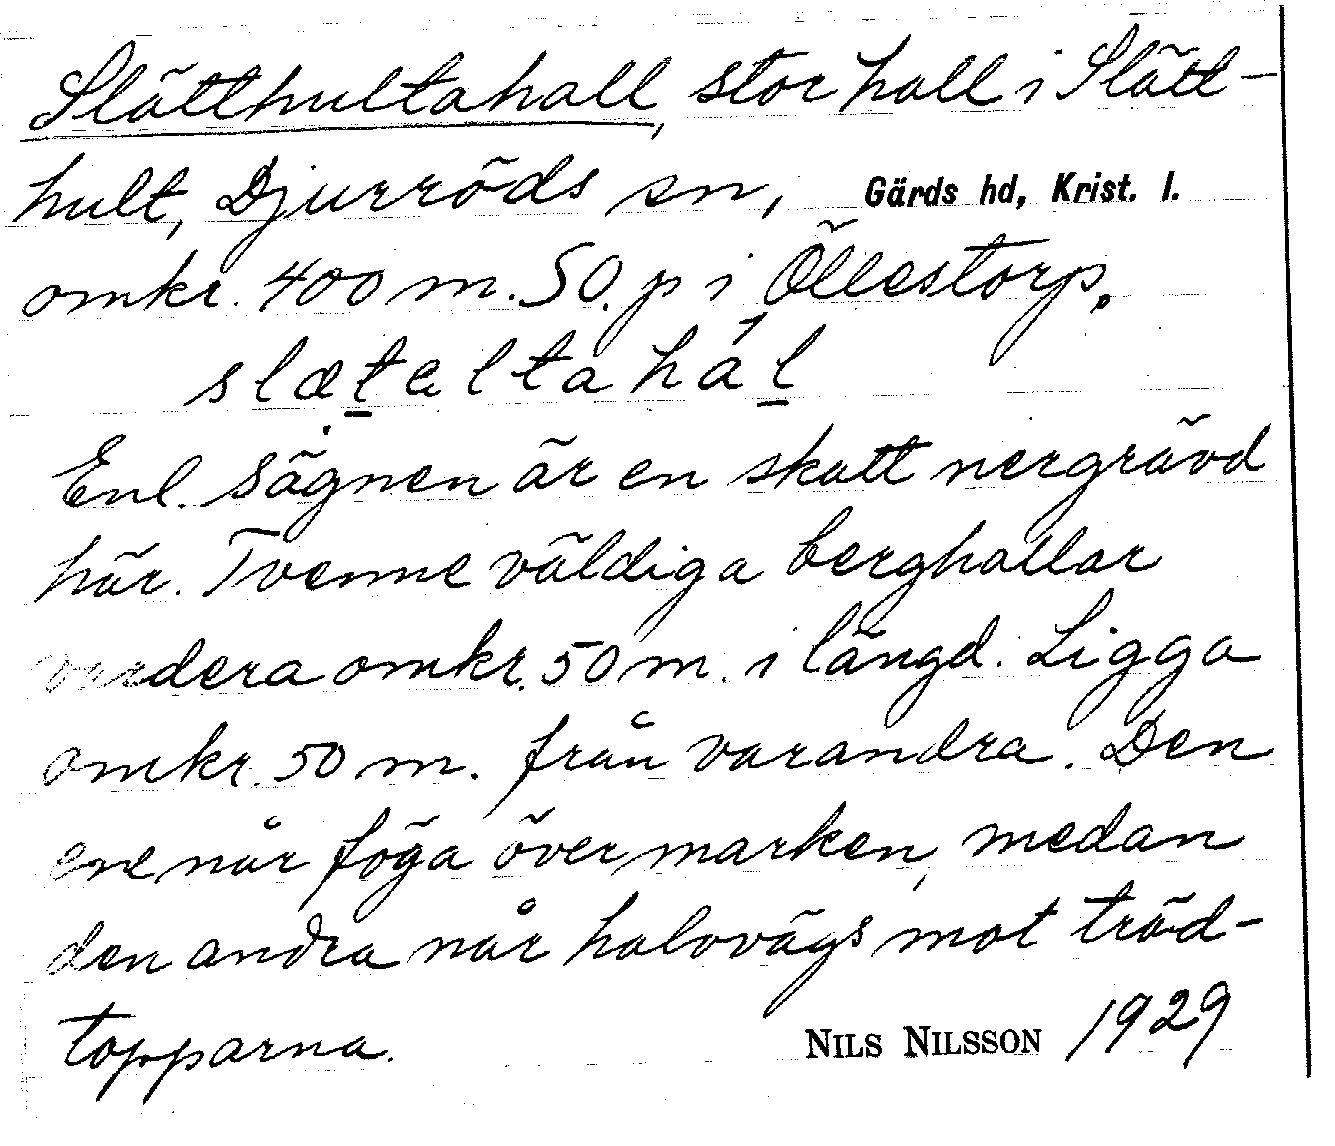 Slätthultahall, stor hall i Slätt-
hult, Djurröds sn, Gärds hd, Krist. l.
omkr. 400 m. SO. p i Öllestorp.
slætaltahál
Enl. sägnen är en skatt nergrävd
här. Tvenne väldiga berghallar
vardera omkr. 50 m. i längd. Ligga
omkr. 50 m. från varandra. Den
ene når föga över marken, medan
den andra når halvvägs mot träd-
topparna. NILS NILSSON 1929